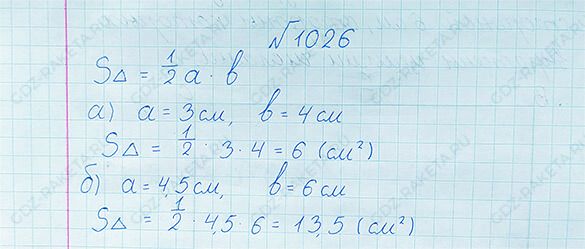 №1026
S△ = 1/2 a · b
а) a = 3 см, b = 4 см
S△ = 1/2 · 3 · 4 = 6 (см²)
б) a = 4,5 см, b = 6 см
S△ = 1/2 · 4,5 · 6 = 13,5 (см²)
GDZ-RAKETA.RU